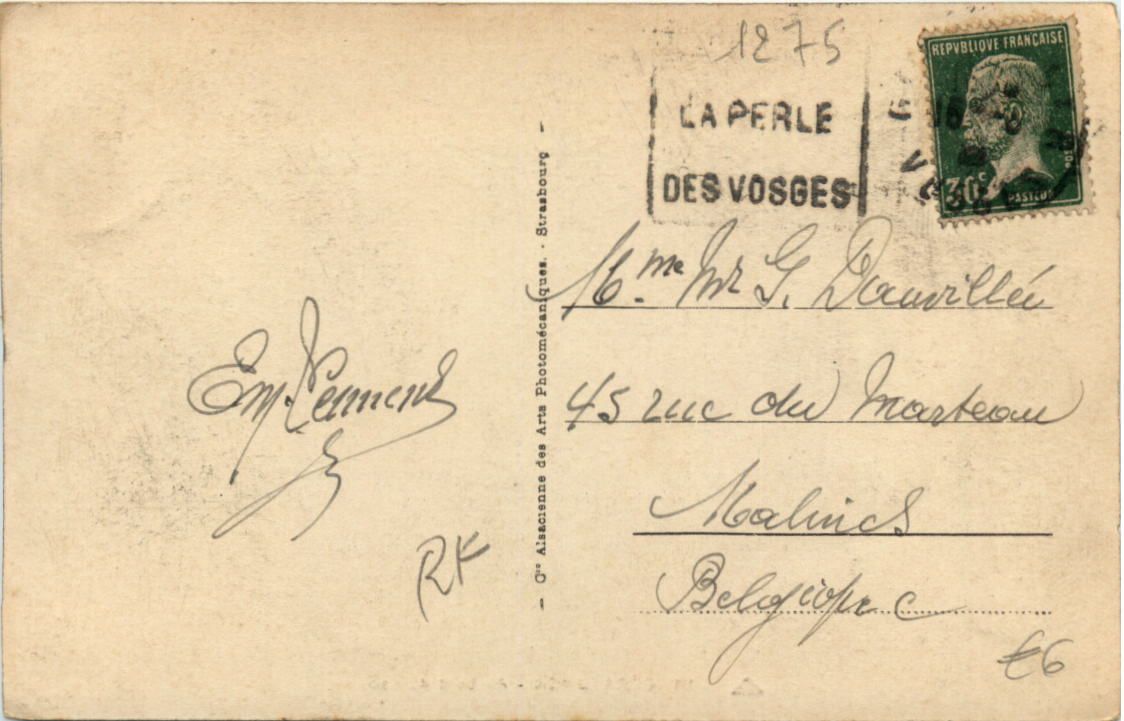 1275
REPVBLIQUE FRANÇAISE
LA PERLE
DES VOSGES
30c
PASTEUR
POSTES
Mme Mr G. Dauvillée
45 rue du Marteau
Malines
Belgique
Em. Clement
RK
€6
- Cie Alsacienne des Arts Photomécaniques. - Strasbourg -